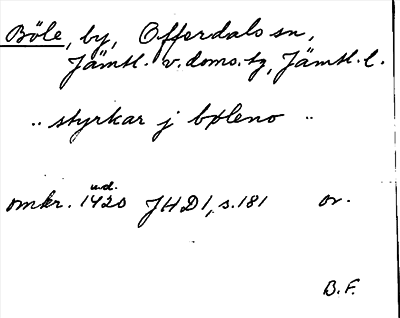 Böle, by, Offerdals sn,
Jämtl. v. doms. tg, Jämtl. l.
.. styrkar j bøleno ..
u.d.
omkr. 1420 JHD 1, s. 181 or.
B. F.